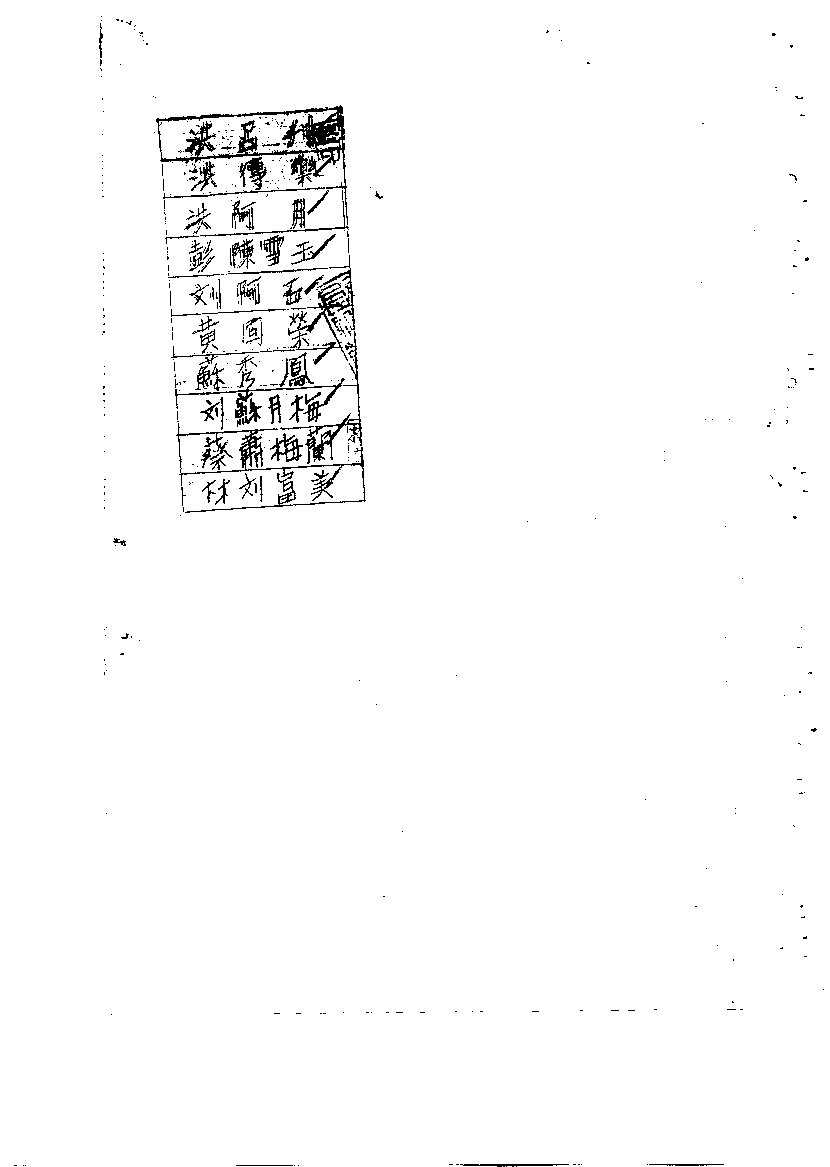 洪呂利
洪傳樂
洪阿月
彭陳雪玉
刘阿玉
黄回榮
蘇秀鳳
刘蘇月梅
蔡蕭梅蘭
林刘富美